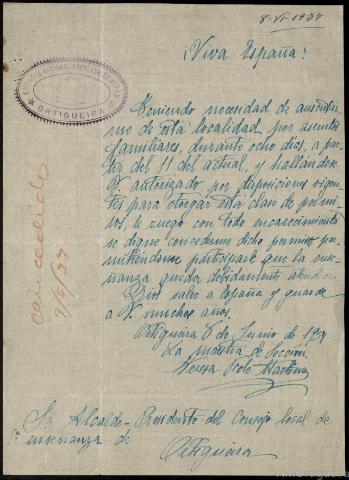 8-VI-1937
¡Viva España!
ORTIGUEIRA
Teniendo necesidad de ausentar-
me de esta localidad por asuntos
familiares, durante ocho días, a par-
tir del 11 del actual, y hallándose
V. autorizado por disposiciones vigen-
tes para otorgar esta clase de permi-
sos, le ruego con todo encarecimiento
se digne concederme dicho permiso per-
mitiéndome participarle que la ense-
ñanza queda debidamente atendida.
Dios salve a España y guarde
a V. muchos años.
Ortigueira 8 de Junio de 1937
La maestra de Sección
Teresa Martínez
concedido
9/6/37
Sr. Alcalde-Presidente del Consejo local de
1ª enseñanza de
Ortigueira